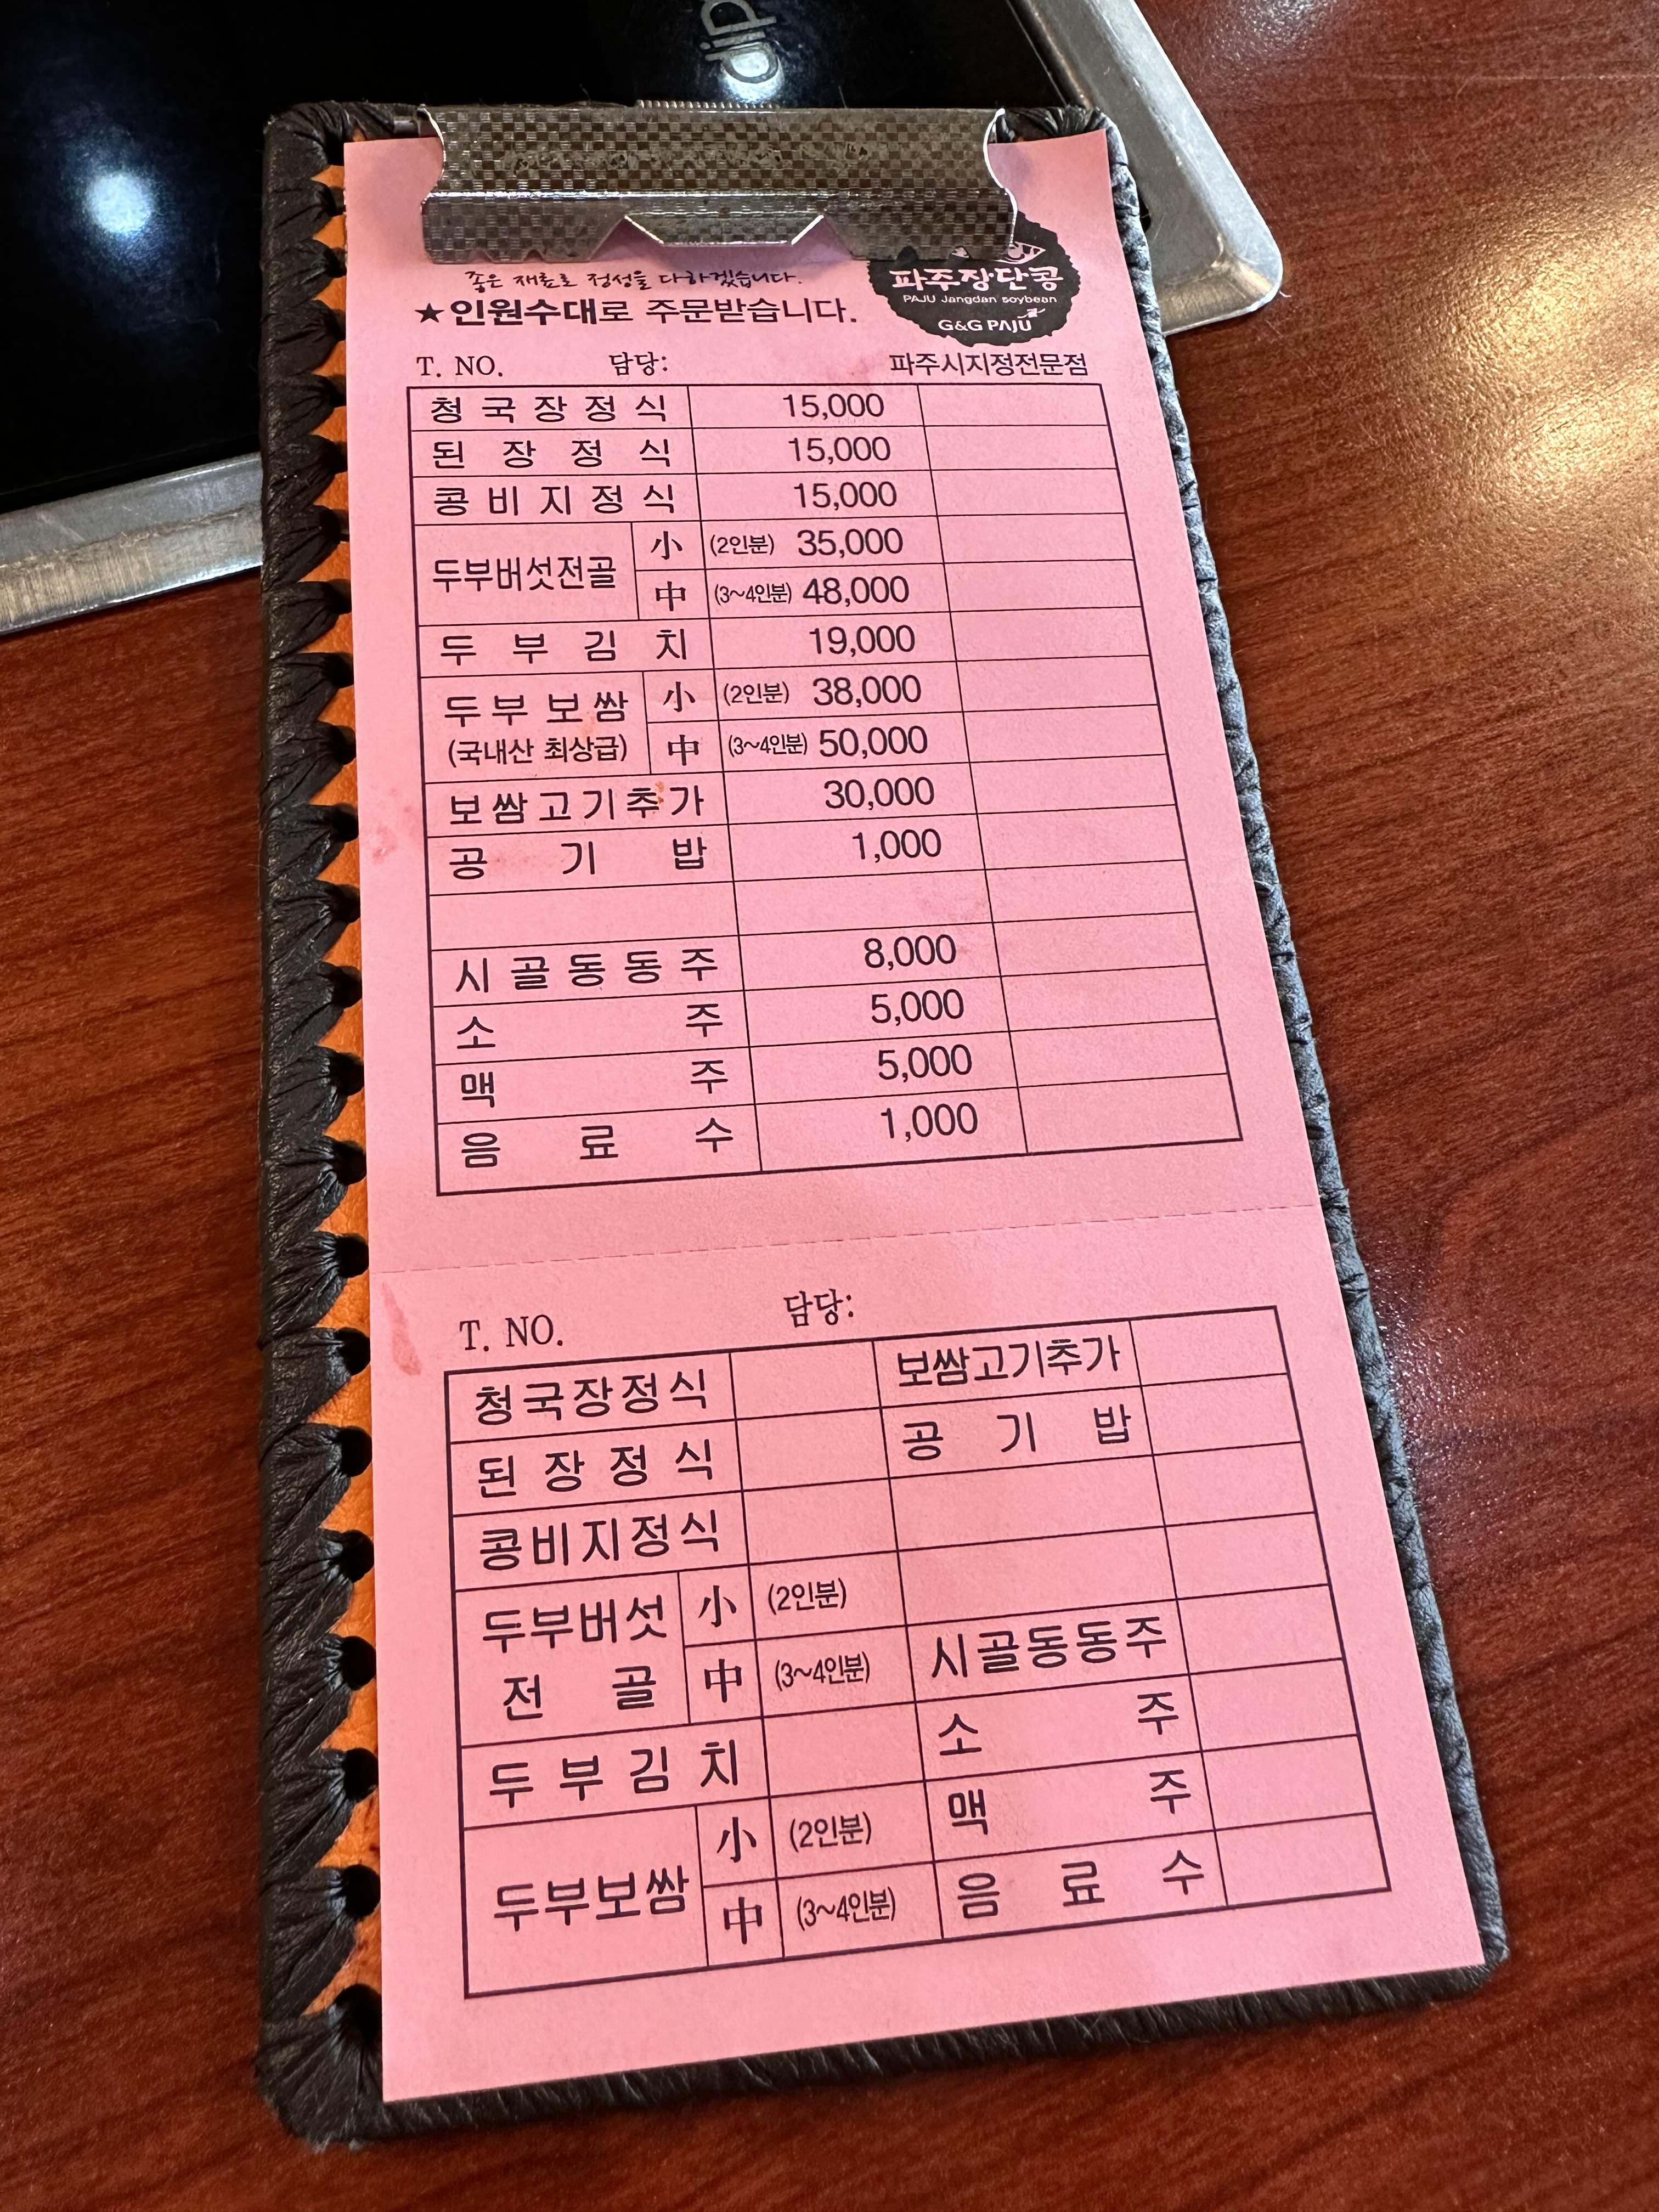 dip
좋은 재료로 정성을 다하겠습니다.
★인원수대로 주문받습니다.
파주장단콩
PAJU Jangdan soybean
G&G PAJU
T. NO. 담당: 파주시지정전문점
청국장정식 15,000
된장정식 15,000
콩비지정식 15,000
두부버섯전골 小 (2인분) 35,000
中 (3~4인분) 48,000
두부김치 19,000
두부보쌈 (국내산 최상급) 小 (2인분) 38,000
中 (3~4인분) 50,000
보쌈고기추가 30,000
공기밥 1,000
시골동동주 8,000
소주 5,000
맥주 5,000
음료수 1,000
T. NO. 담당:
청국장정식 보쌈고기추가
된장정식 공기밥
콩비지정식
두부버섯전골 小 (2인분)
中 (3~4인분) 시골동동주
두부김치 소주
두부보쌈 小 (2인분) 맥주
中 (3~4인분) 음료수